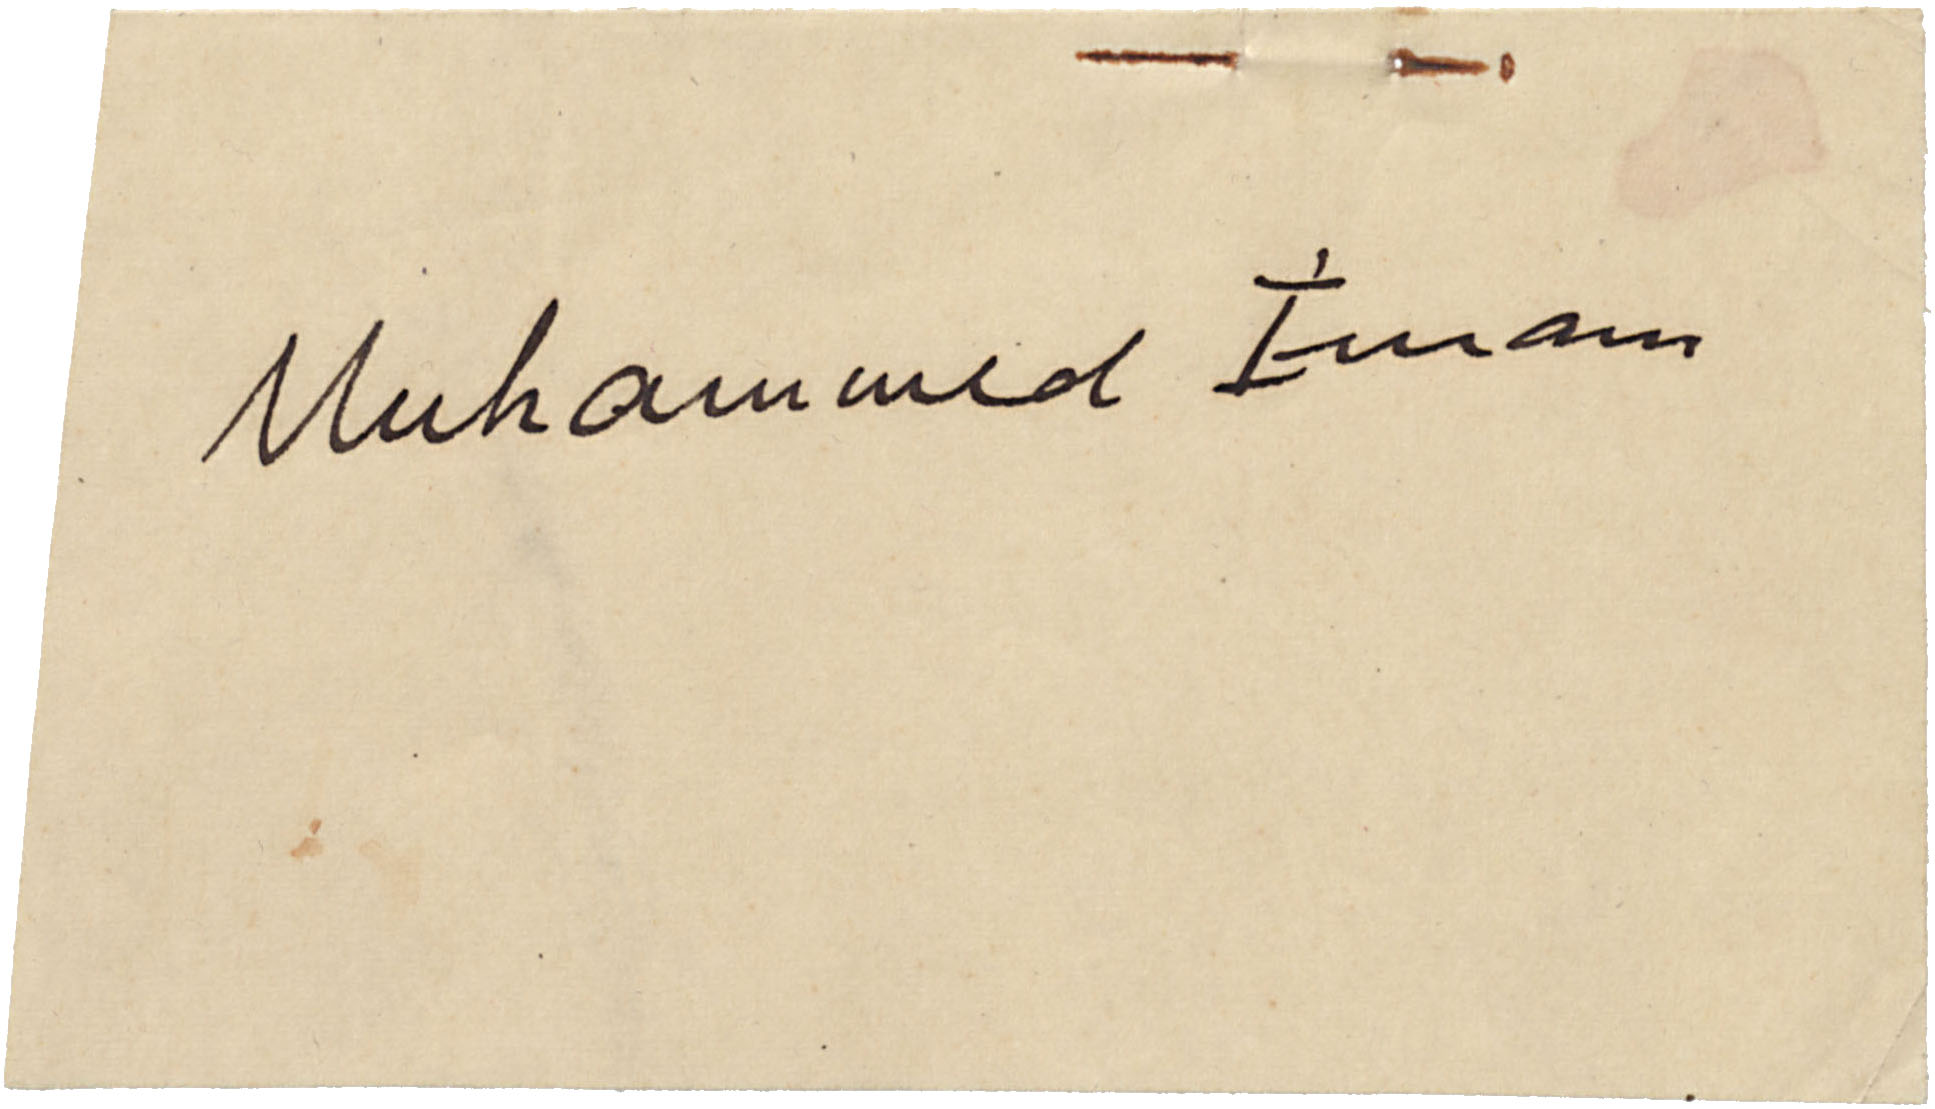 Muhammed İmam